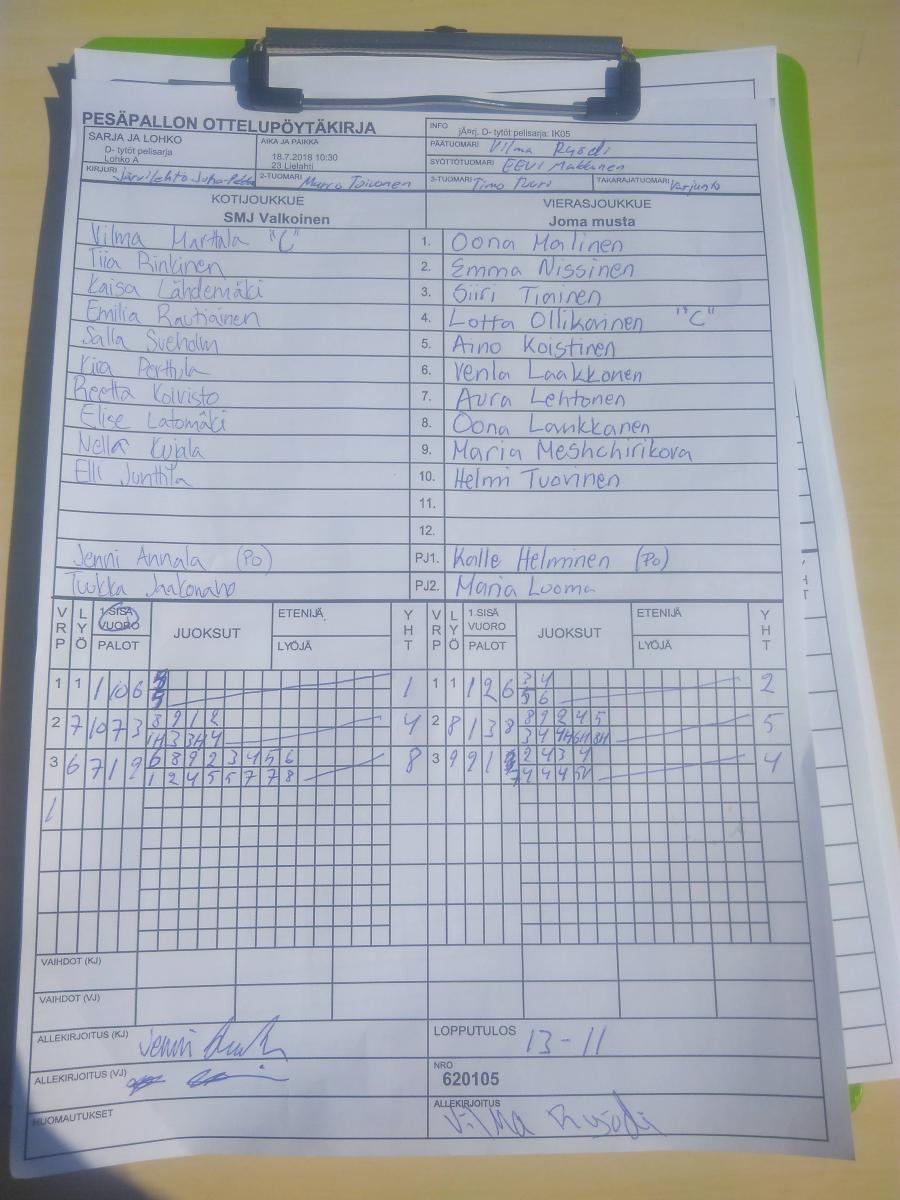 PESÄPALLON OTTELUPÖYTÄKIRJA
INFO jÃ¤rj. D- tytöt pelisarja: IK05
SARJA JA LOHKO
D- tytöt pelisarja
Lohko A
AIKA JA PAIKKA
18.7.2018 10:30
23 Lielahti
PÄÄTUOMARI Vilma
SYÖTTÖTUOMARI EEVI
KIRJURI Järvilehto Juha-Pekka 2-TUOMARI Marco Toivonen 3-TUOMARI Timo TAKARAJATUOMARI Varjunto
KOTIJOUKKUE VIERASJOUKKUE
SMJ Valkoinen Joma musta
Vilma Marttala "C" 1. Oona Malinen
Tiia Rinkinen 2. Emma Nissinen
Kaisa Lähdemäki 3. Siiri Tiainen
Emilia Rautiainen 4. Lotta Ollikainen "C"
Salla Sveholm 5. Aino Koistinen
Kira Perttula 6. Venla Laakkonen
Reetta Koivisto 7. Aura Lehtonen
Elise Latomäki 8. Oona Lankkanen
Nella Kujala 9. Maria Meshchirikova
Elli Junttila 10. Helmi Tuovinen
11.
12.
Jenni Annala (Po) PJ1. Kalle Helminen (Po)
Tuukka PJ2. Maria Luoma
VRP LYÖ 1.SISÄ VUORO PALOT JUOKSUT ETENIJÄ LYÖJÄ YHT VRP LYÖ 1.SISÄ VUORO PALOT JUOKSUT ETENIJÄ LYÖJÄ YHT
1 1 1 10 6 1 1 1 1 2 6 3 4 2
5 5 6
2 7 10 7 3 8 9 1 2 4 2 8 1 3 8 8 9 2 4 5 5
1H 3 3H 4 3 4 4H 6H 8H
3 6 7 1 9 6 8 9 2 3 4 5 6 8 3 9 9 2 1 2 4 3 4 4
1 2 4 5 5 7 7 8 4 4 4
1
VAIHDOT (KJ)
VAIHDOT (VJ)
ALLEKIRJOITUS (KJ) Jenni
LOPPUTULOS 13-11
ALLEKIRJOITUS (VJ)
NRO
620105
HUOMAUTUKSET
ALLEKIRJOITUS
Vilma